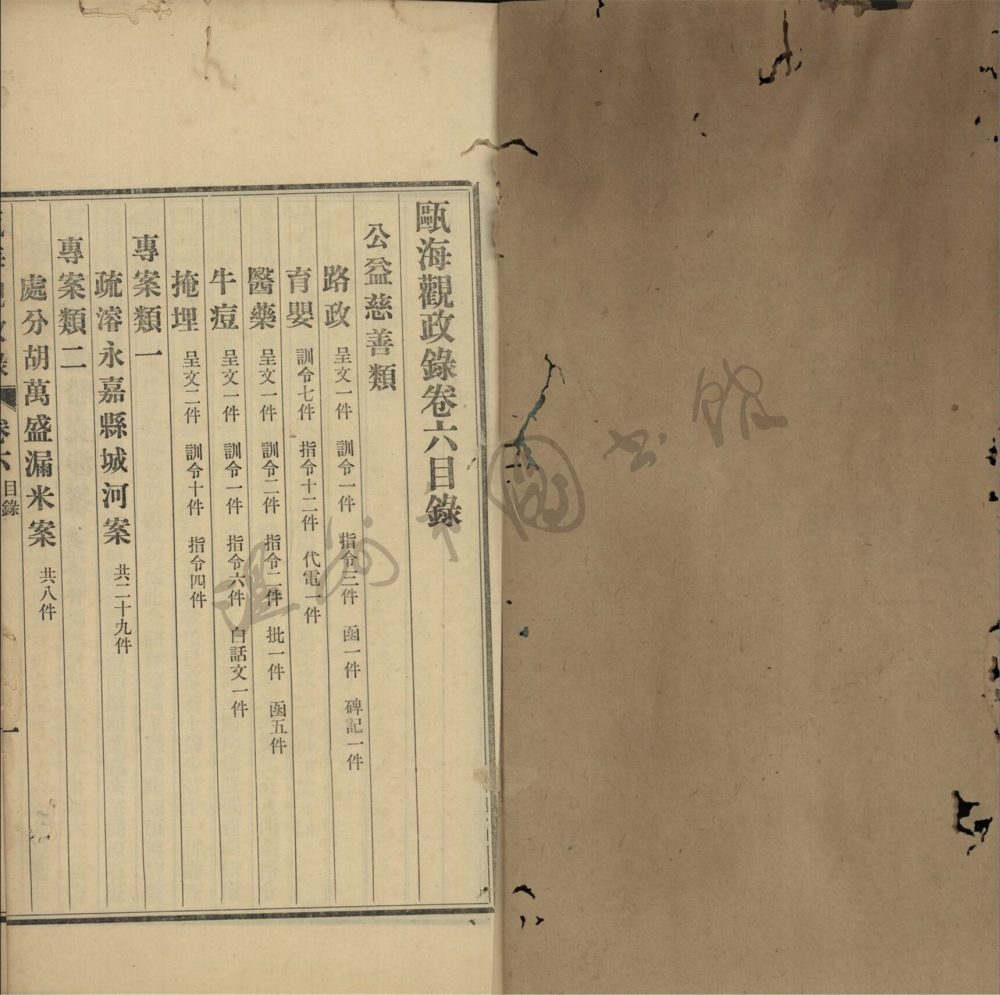 甌海觀政錄卷六目錄
公益慈善類
路政 呈文一件 訓令一件 指令三件 函一件 碑記一件
育嬰 訓令七件 指令十二件 代電一件
醫藥 呈文一件 訓令二件 指令二件 批一件 函五件
牛痘 呈文一件 訓令一件 指令六件 白話文一件
掩埋 呈文二件 訓令十件 指令四件
專案類一
疏濬永嘉縣城河案 共二十九件
專案類二
處分胡萬盛漏米案 共八件
卷六 目錄
一
溫州圖書館